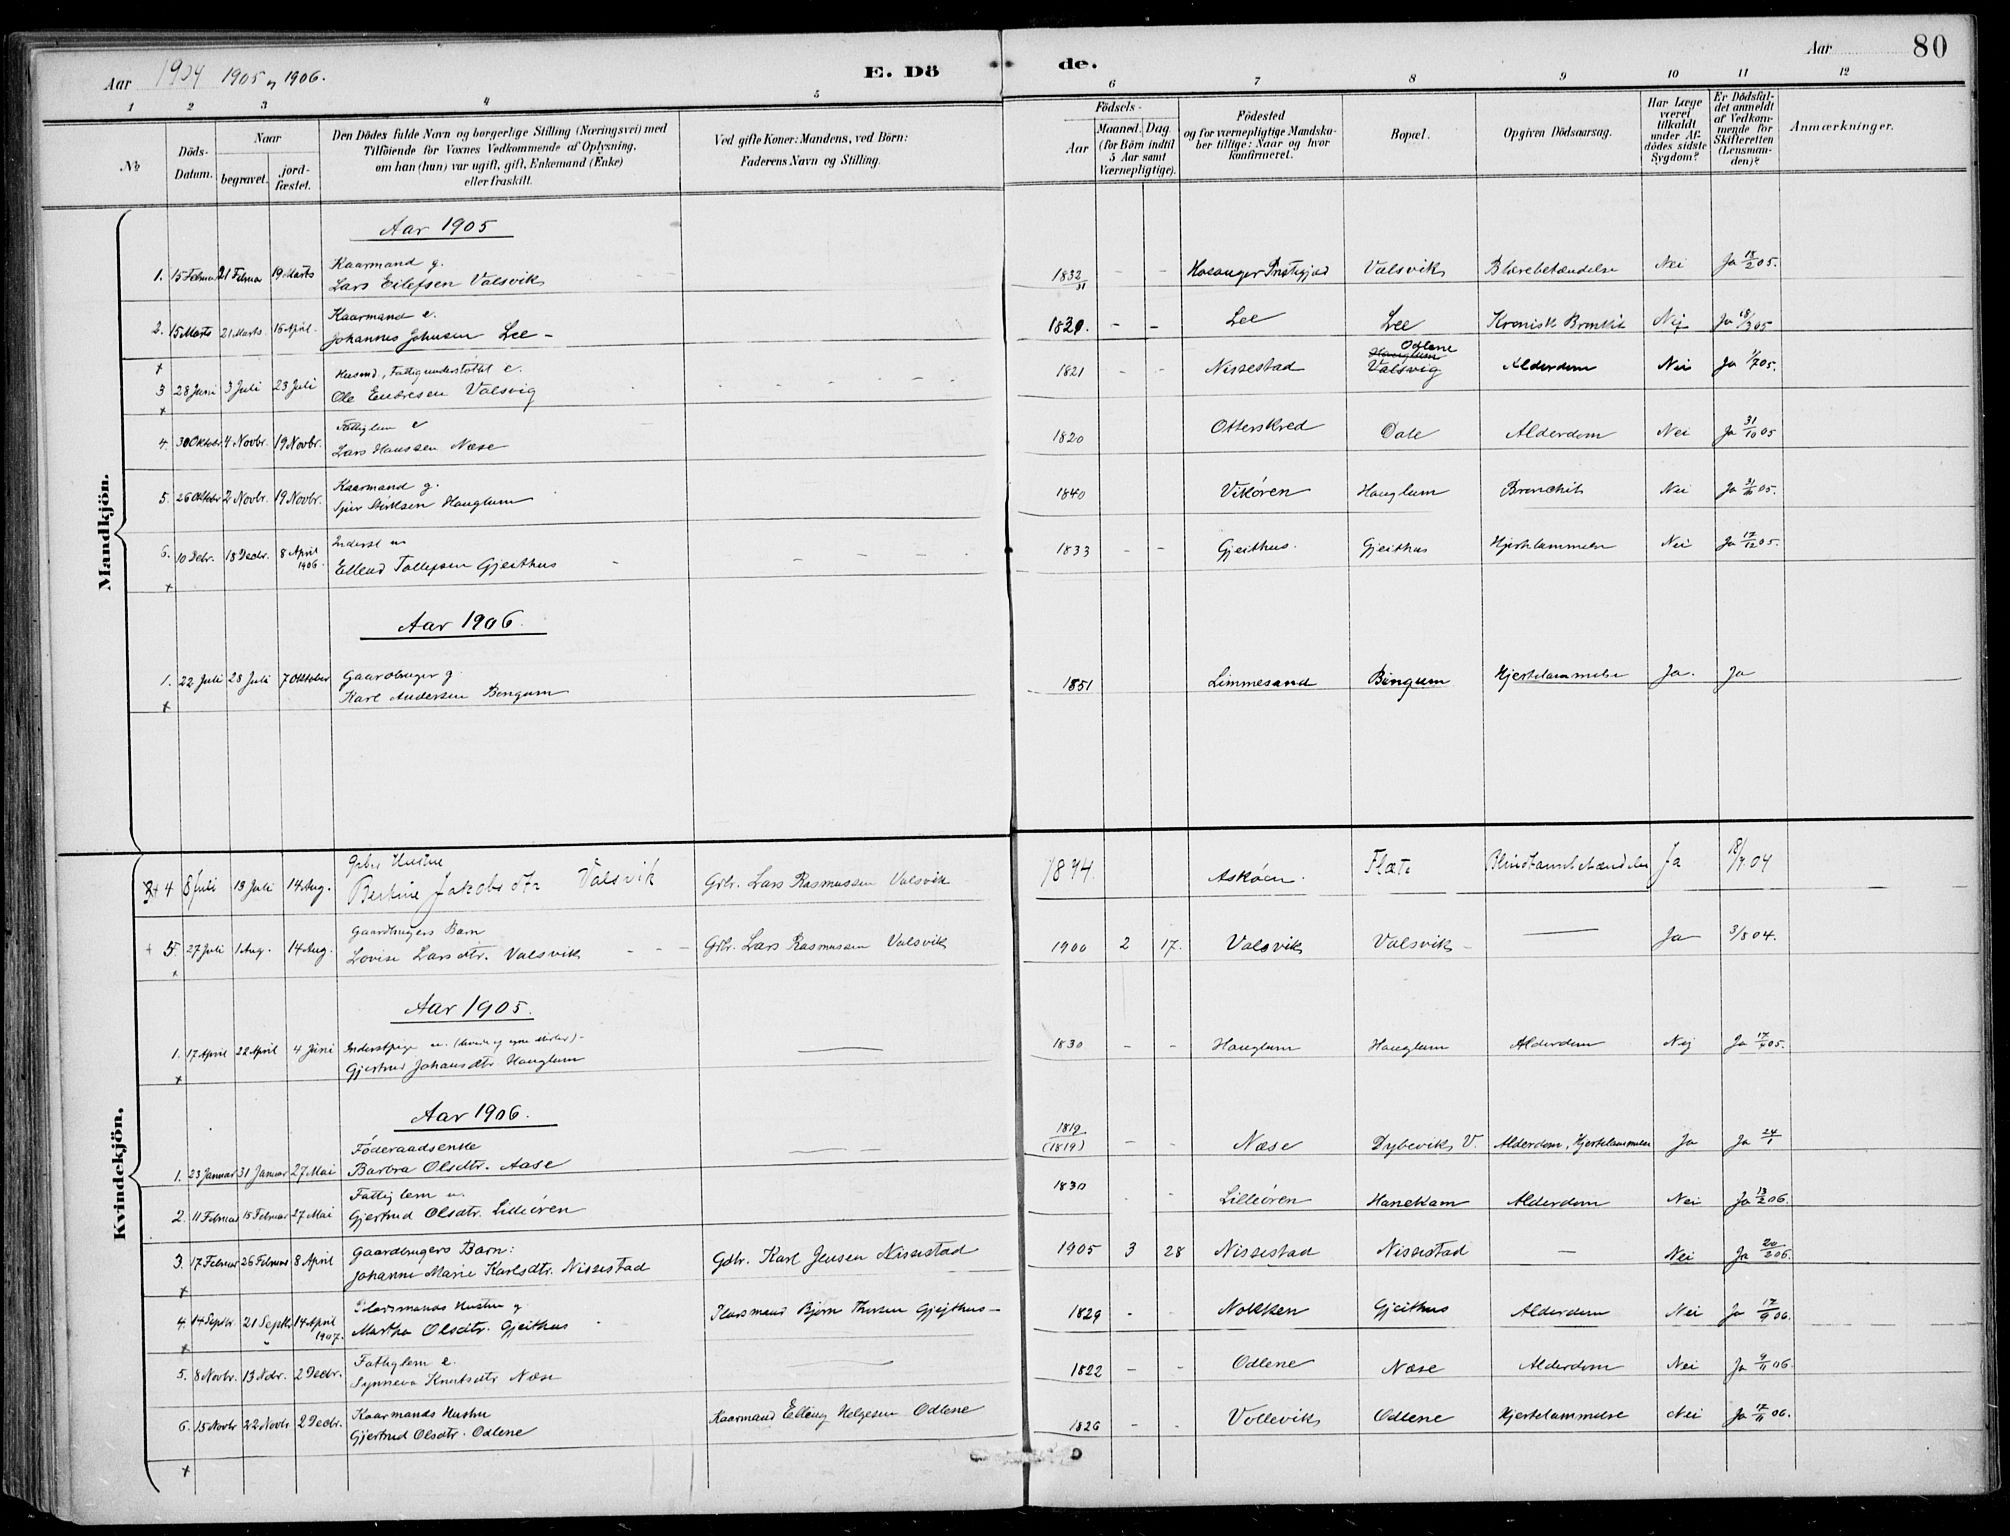 Aar 1904 1905 og 1906.
E. Dö
de.
Aar
80
1 2 3 4 5 6 7 8 9 10 11 12
No
Döds-Datum.
Naar
begravet.
jord-fæstet.
Den Dödes fulde Navn og borgerlige Stilling (Næringsvei) med
Tilföiende for Voxnes Vedkommende af Oplysning,
om han (hun) var ugift, gift, Enkemand (Enke)
eller fraskilt.
Ved gifte Koner: Mandens, ved Börn:
Faderens Navn og Stilling.
Födsels-
Aar
Maaned. Dag.
(for Börn indtil
5 Aar samt
Værnepligtige).
Födested
og for værnepligtige Mandska-
ber tillige: Naar og hvor
konfirmeret.
Bopæl.
Opgiven Dödsaarsag.
Har Læge
været
tilkaldt
under Af-
dödes sidste
Sygdom?
Er Dödsfal-
det anmeldt
af Vedkom-
mende for
Skifteretten
(Lensman-
den)?
Anmærkninger.
Mandkjön.
Aar 1905
Kaarmand g.
1. 15 Februar 21 Februar 19 Marts Lars Eilefsen Valsvik 1832 - - Hosanger Valsvik Blærebetændelse Nei Ja 18/2 05.
Kaarmand e.
2. 15 Marts 21 Marts 16 April Johannes Johnsen Lee - 1821. - - Lee Lee Kronisk Bronkit Nej Ja 18/3 05
Husmd, Fattigunderstöttet e. Odlene
3 28 Juni 3 Juli 23 Juli Ole Endresen Valsvig 1821 - - Nissestad Valsvig Alderdom Nei Ja 1/7 05.
Fattiglem e
4. 30 Oktobr 4 Novbr. 19 Novbr. Lars Hanssen Næse 1820 Otterskred Dale Alderdom Nei Ja 31/10 05
Kaarmand g.
5. 26 Oktobr 2 Novbr. 19 Novbr. Sjur Hauglum 1840 Vikören Hauglum Bronchit Nei Ja 31/10 05.
Inderst u.
6. 10 Debr. 18 Decbr. 8 April 1906. Ellend Tollefsen Gjeithus 1833 - - Gjeithus. Gjeithus Hjertelammelse Nei Ja 17/12 05.
Aar 1906.
Gaardbruger g.
1. 22 Juli 28 Juli 7 Oktober Karl Andersen Bengum 1851 Limmesand Bengum Hjertelammelse Ja. Ja
Kvindekjön.
Gbr. Hustru
4 8 Juli 13 Juli 14 Aug. Bertine Jakobsdtr Valsvik Gdbr. Lars Rasmussen Valsvik 1874. Askøen. Flate Blindtarmsbetændelse Ja 18/7 04
Gaardbrugers Barn
5 27 Juli 1 Aug. 14 Aug. Lovise Larsdtr. Valsvik Gdbr. Lars Rasmussen Valsvik 1900 2 17. Valsvik Valsvik - Ja 3/8 04.
Aar 1905.
Inderstpige u.
1. 17 April 22 April 4 Juni Gjertrud Johansdtr Hauglum 1830 - - Hauglum Hauglum Alderdom Nej Ja 17/4 05.
Aar 1906.
Föderaadsenke
1. 23 Januar 31 Januar 27 Mai Barbra Olsdtr. Aase 1819 (1819) - - Næse Dybevik V. Alderdom, Hjertelammelse Ja Ja 24/1
Fattiglem u.
2. 11 Februar 15 Februar 27 Mai Gjertrud Olsdtr. Lilleören 1830 Lilleören Hanekam Alderdom Nei Ja 13/2 06.
Gaardbrugers Barn:
3. 17 Februar 26 Februar 8 April Johanne Marie Karlsdtr. Nissestad Gdbr. Karl Jensen Nissestad 1905 3 28 Nissestad Nissestad - Nei Ja 20/2 06.
Pladsmands Hustru g
4. 14 Septbr. 21 Septbr 14 April 1907. Martha Olsdtr. Gjeithus Pladsmand Björn Gjejthus - 1829 - Nokken Gjeithus Alderdom Nei Ja 17/9 06.
Fattiglem e.
5. 8 Novbr. 13 Nobr. 2 Decbr. Synneva Knutsdtr Næse 1822 - - Odlene Næse Alderdom Nei Ja 9/11 06.
Kaarmands Hustru
6. 15 Novbr 22 Novbr 2 Decbr. Gjertrud Olsdtr. Odlene Kaarmand Elling Helgesen Odlene 1826 - - Vollevik Odlene Hjertelammelse Nei Ja 17/11 06.